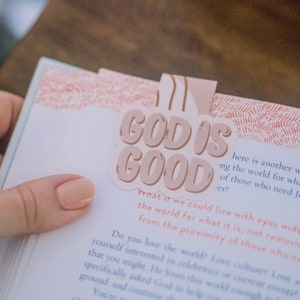 GOD IS
GOOD
here is another w
ng the world for what
of those who need l
er?
What if we could live with eyes wide
the world for what it is, not remov
From the proximity of those who no
Do you love the world? Love culture? Love
yourself interested in celebrities or current events?
that you might. He loves this world enough
specifically asked God to help
ground, and continue t
You're